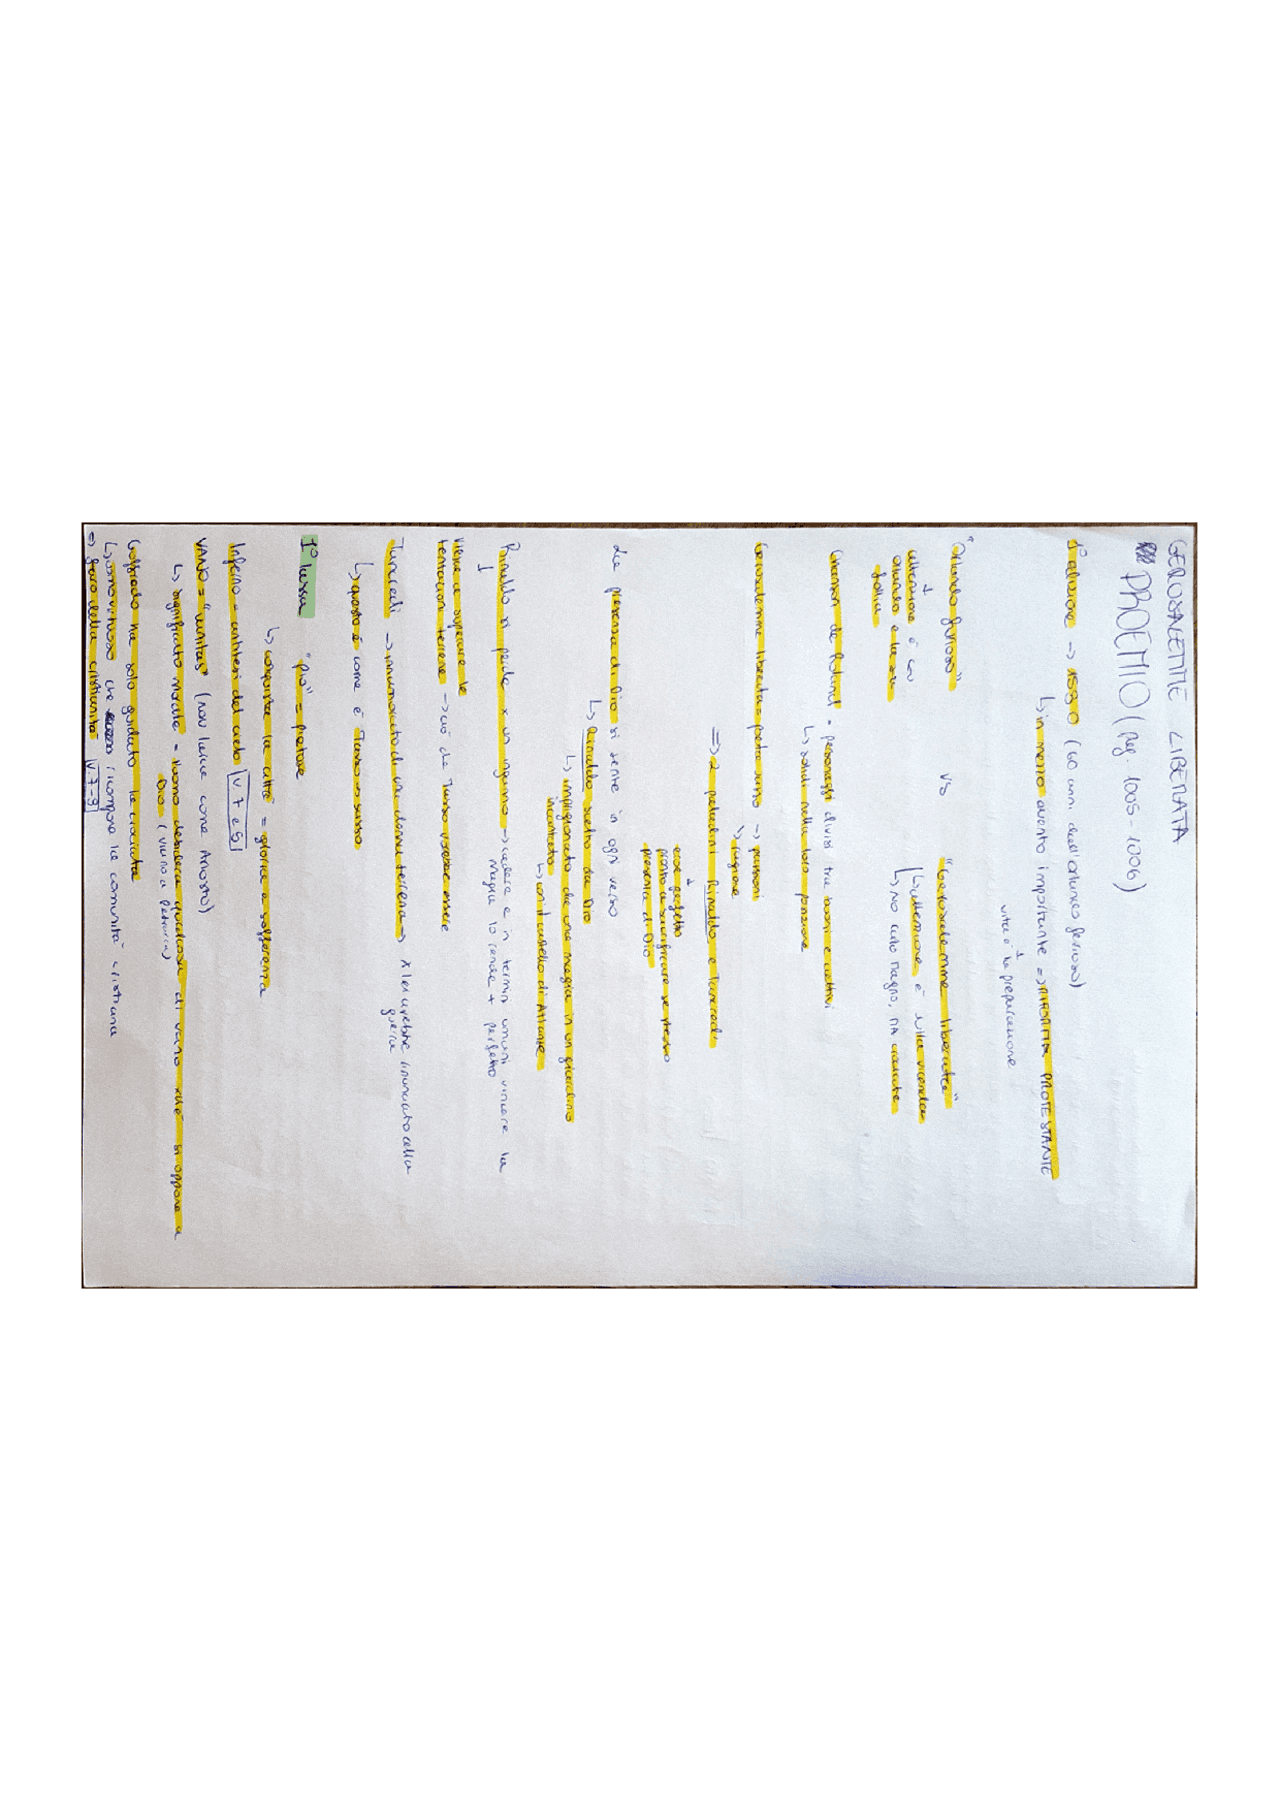 GERUSALEMME LIBERATA
PROEMIO (pag. 1005-1006)
1° edizione → 1580 (60 anni dall'orlando furioso)
↳ in mezzo evento importante ⇒ RIFORMA PROTESTANTE
↓
vita è la preparazione
"Orlando furioso" VS "Gerusalemme liberata"
↓
attenzione è su
orlando e la sua
follia
↳ attenzione è sulla vicenda
↳ no carlo magno, MA crociate
Chanson de Roland = personaggi divisi tra buoni e cattivi
↳ solidi nella loro posizione
Gerusalemme liberata = poeta sasso → passioni
↘ ragione
⇒ 2 paladini Rinaldo e Tancredi
↓
eroe perfetto
pronto a sacrificare se stesso
presenza di Dio
La presenza di Dio si sente in ogni verso
↳ Rinaldo scelto da Dio
↳ imprigionato da una magia in un giardino
incantato
↳ con il castello di Atlante
Rinaldo si perde x un inganno → cadere e in termini umani vincere la
magia lo rende + perfetto
↓
viene a superare le
tentazioni terrene → ciò che Tasso essere
Tancredi → innamorato di una donna terrena → x lei avrebbe rinunciato alla
guerra
↳ questo è come è Tasso
1° lassa "pio" = pietose
↳ conquista la città = gloria e sofferenza
Inferno = antitesi del cielo v. 7 e 5
VANO = "vanitas" (non lieve come Ariosto)
↳ significato morale = uomo desidera qualcosa di vano xkè si oppone a
Dio (vicino a petrarca)
Goffredo ha solo guidato le crociate
↳ uomo virtuoso che ricompone la comunità cristiana
⇒ faro della cristianità v. 7-8